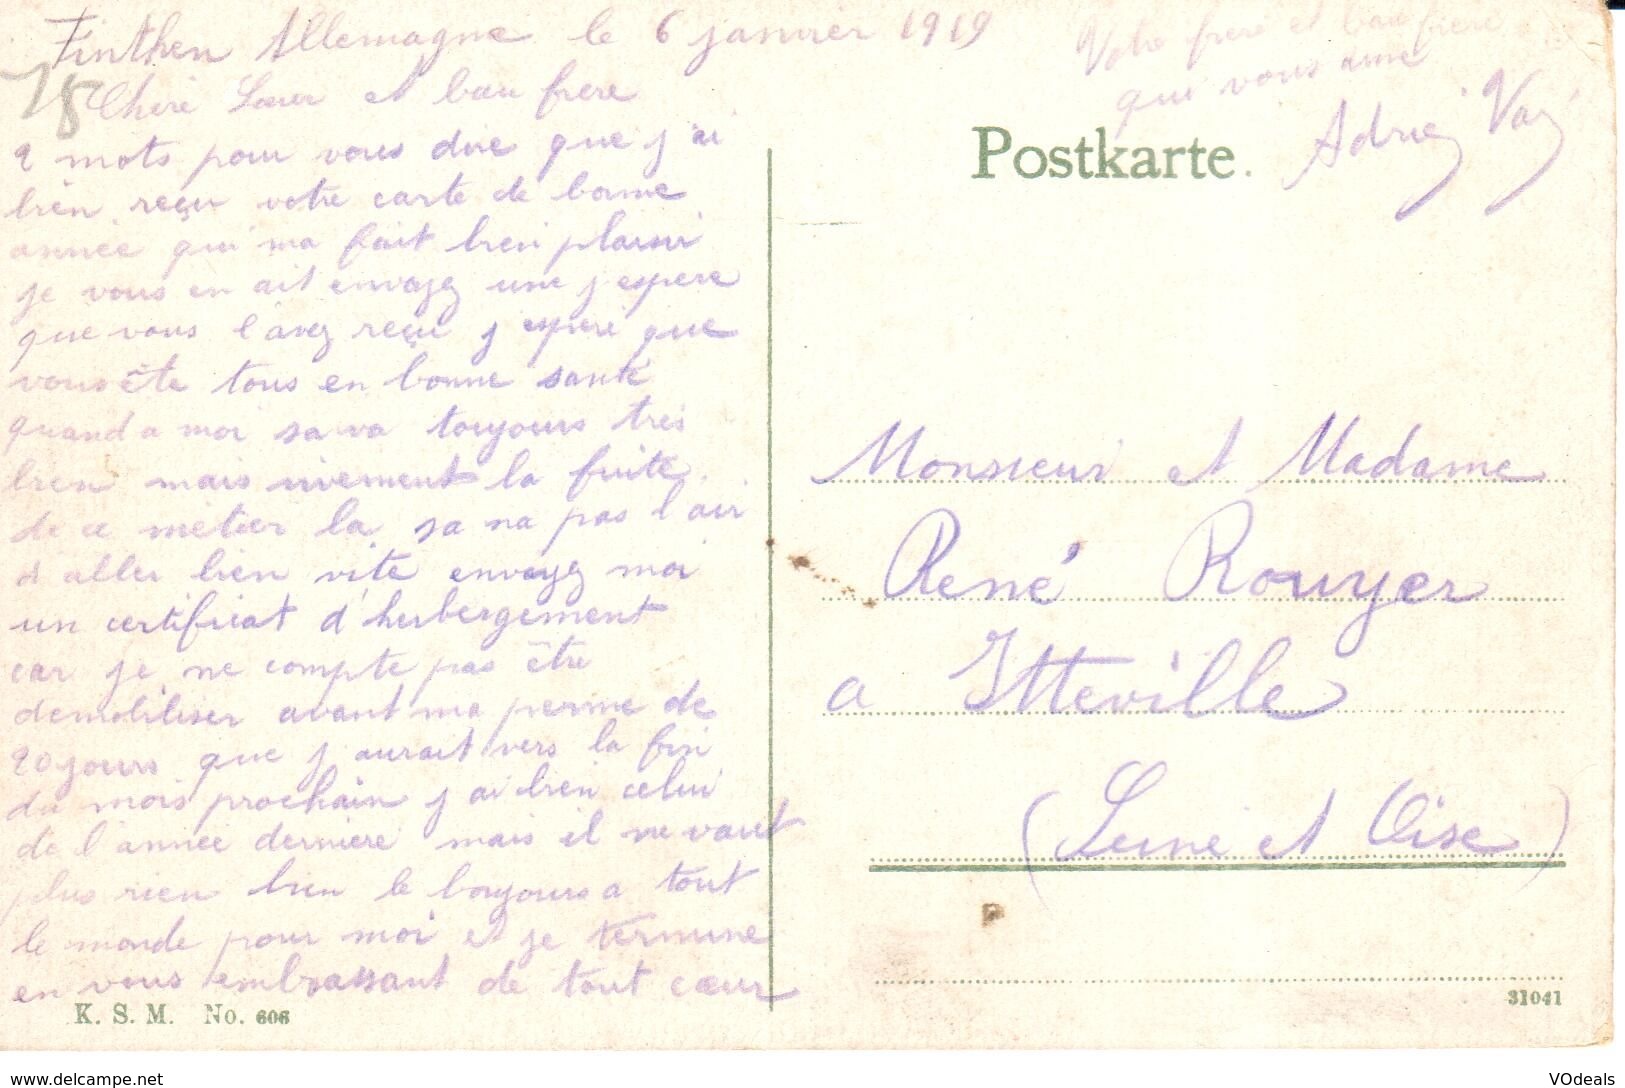 Finthen Allemagne le 6 janvier 1919
Chère Sœur et bau frere
2 mots pour vous dire que j'ai
bien reçu votre carte de bonne
année qui ma fait bien plaisir
je vous en ait envoyez une j espere
que vous l'avez reçu j espere que
vous ête tous en bonne santé
quand a moi sa va toujours très
bien mais vivement la fuite
de ce métier la sa na pas l'air
d'aller bien vite envoyez moi
un certificat d'herbergement
car je ne compte pas être
demobiliser avant ma perme de
20 jours que j'aurait vers la fin
du mois prochain j'ai bien celui
de l'année derniere mais il ne vaut
plus rien bien le bonjours a tout
le monde pour moi et je termine
en vous embrassant de tout cœur
Votre frere et bau frere
qui vous aime
Adrien
75
Postkarte.
Monsieur et Madame
René Rouyer
a Itteville
(Seine et Oise)
K. S. M. No. 606
31041
www.delcampe.net
VOdeals